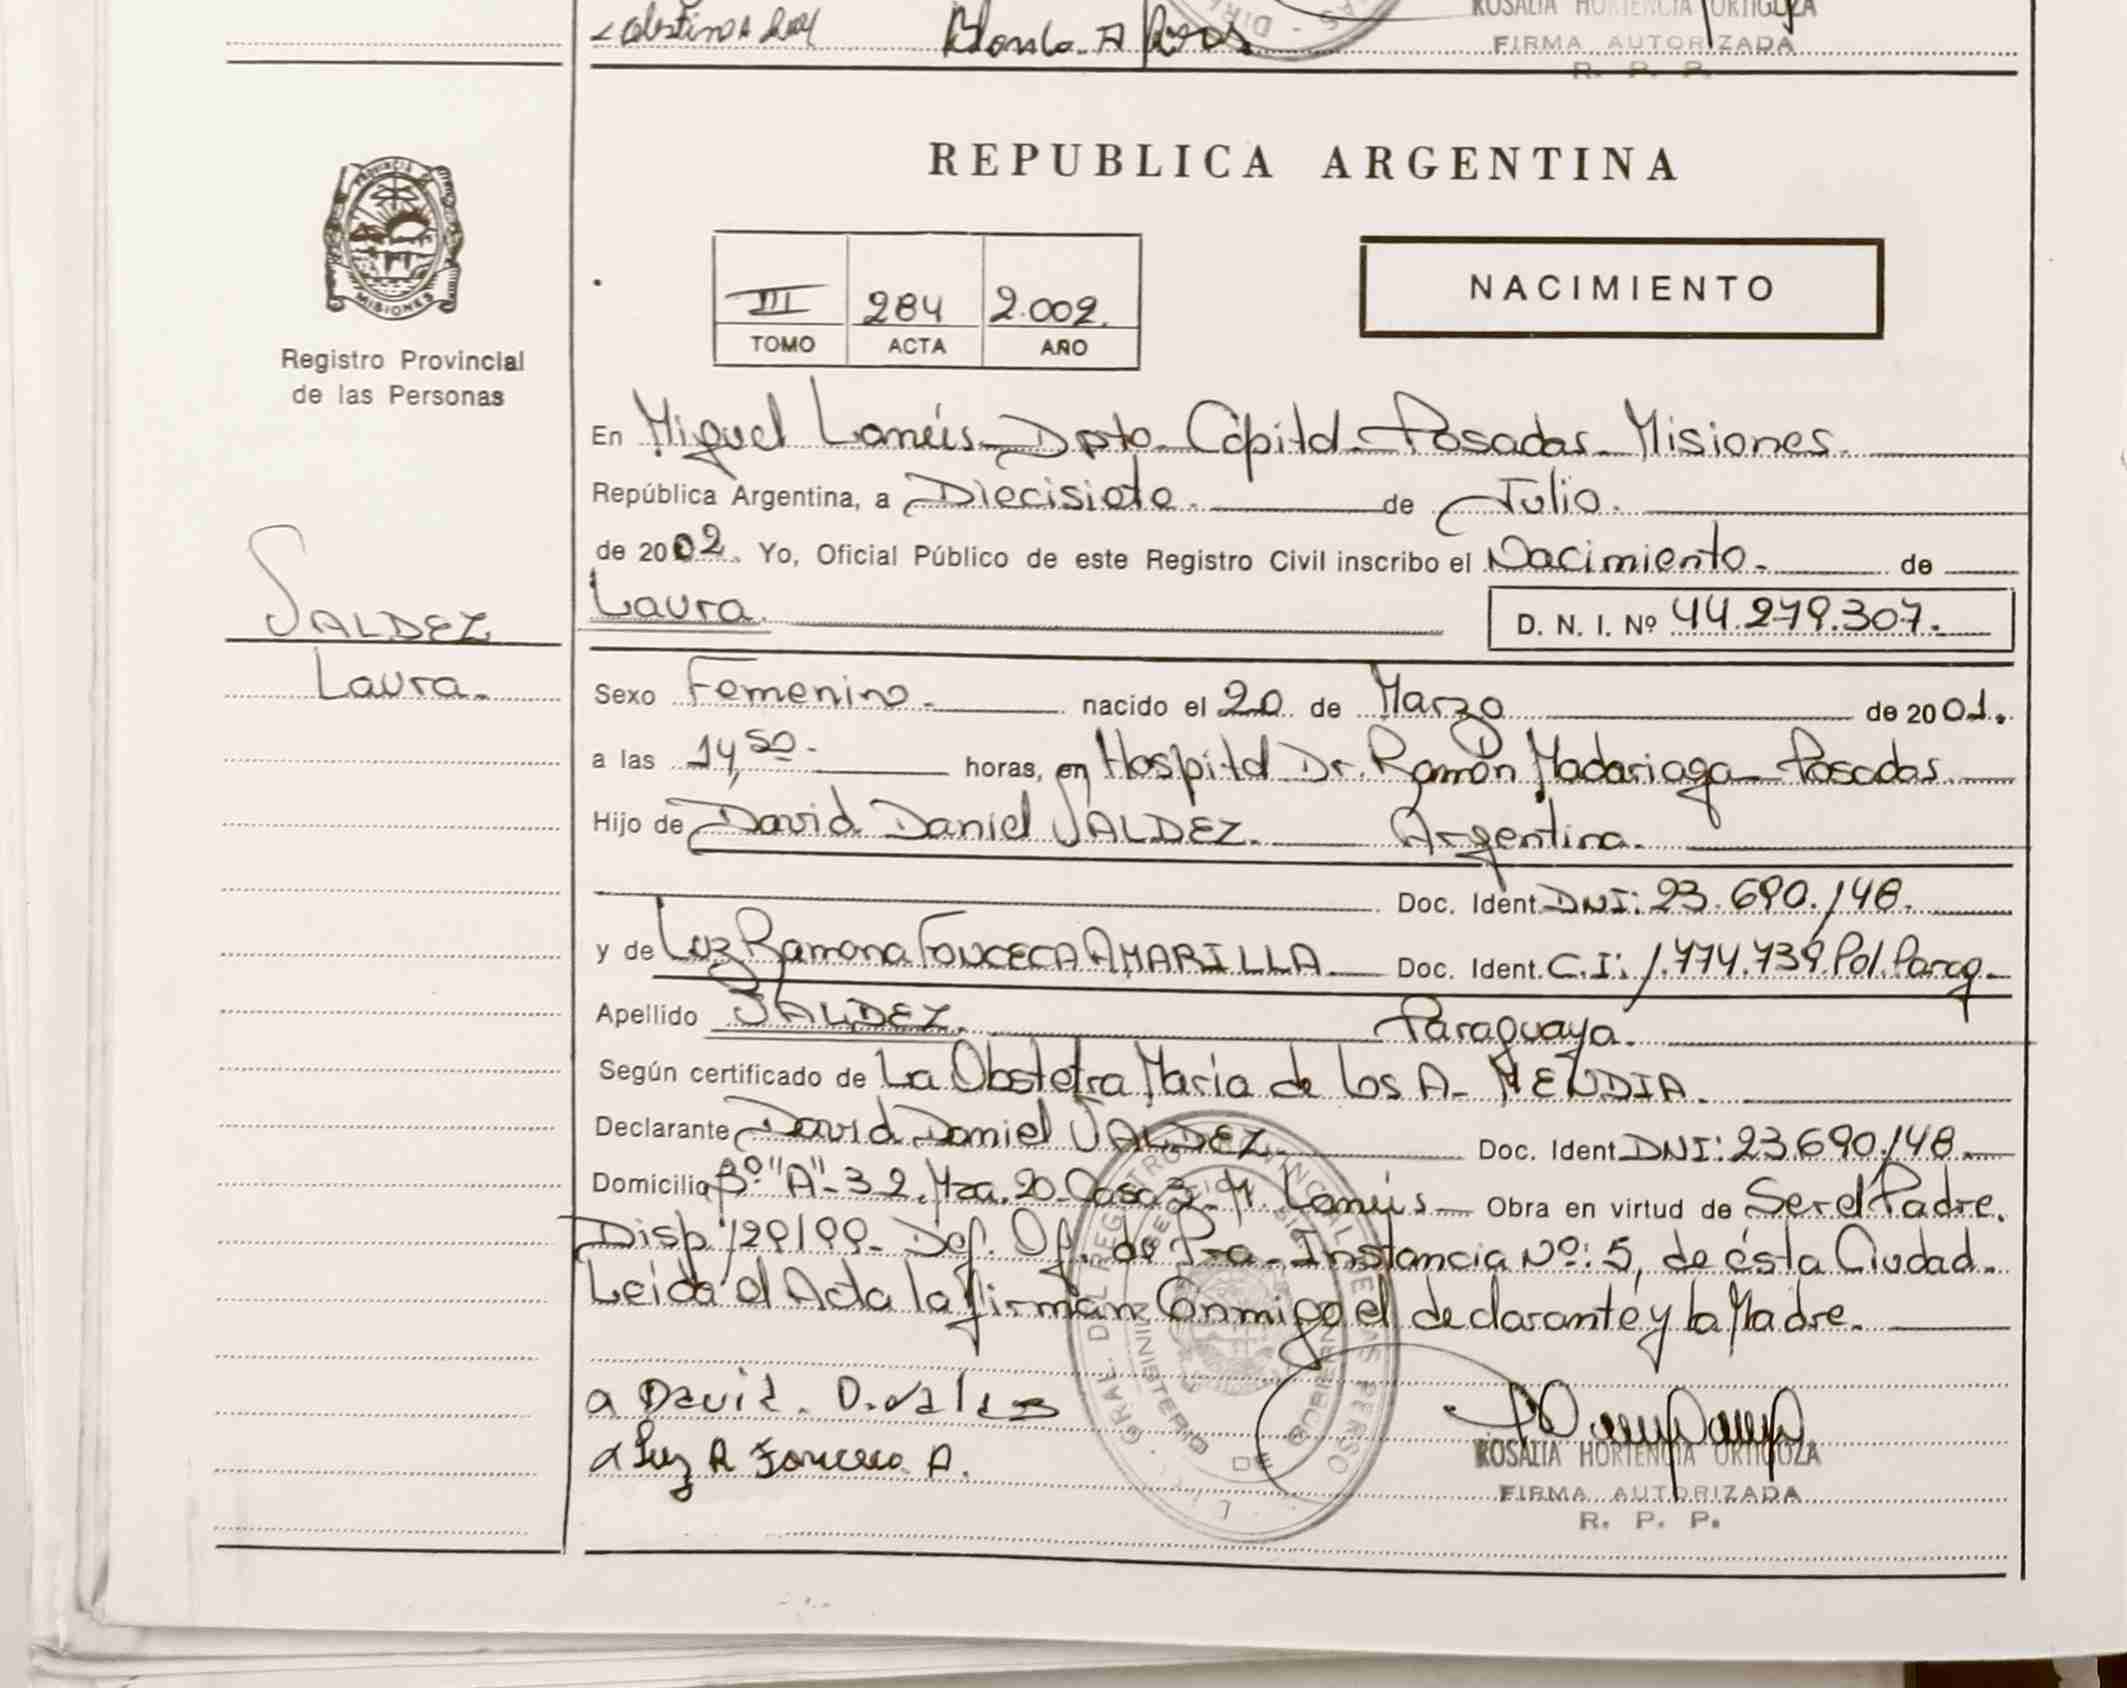 ROSALIA HORTENCIA ORTIGOZA
FIRMA AUTORIZADA
R. P. P.
PROVINCIA
MISIONES
Registro Provincial
de las Personas
REPUBLICA ARGENTINA
III 284 2.002.
TOMO ACTA AÑO
NACIMIENTO
En Miguel Lanús - Dpto - Capital - Posadas - Misiones.
República Argentina, a Diecisiete. de Julio.
de 2002. Yo, Oficial Público de este Registro Civil inscribo el Nacimiento - de
Laura. D. N. I. Nº 44.279.307.
VALDEZ
Laura.
Sexo Femenino. nacido el 20 de Marzo de 2001.
a las 14,50. horas, en Hospital Dr. Ramón Madariaga - Posadas
Hijo de David Daniel VALDEZ. Argentina.
Doc. Ident. DNI: 23.690.148.
y de Luz Ramona FONCECA AMARILLA Doc. Ident. C.I: 1.774.739 Pol. Parag.
Apellido VALDEZ. Paraguaya.
Según certificado de La Obstetra María de los A. MENDIA.
Declarante David Daniel VALDEZ. Doc. Ident. DNI: 23.690.148.
Domicilio Bº "A"-3 2. Mza. 20 - Casa 3 - M. Lanús - Obra en virtud de Ser el Padre.
Disp. 129/99 - Def. Of. de Pra - Instancia Nº: 5, de ésta Ciudad.
Leida el Acta la firman Conmigo el declarante y la Madre.
a David. D. Valdez
a Luz R Fonceca A.
ROSALIA HORTENCIA ORTIGOZA
FIRMA AUTORIZADA
R. P. P.